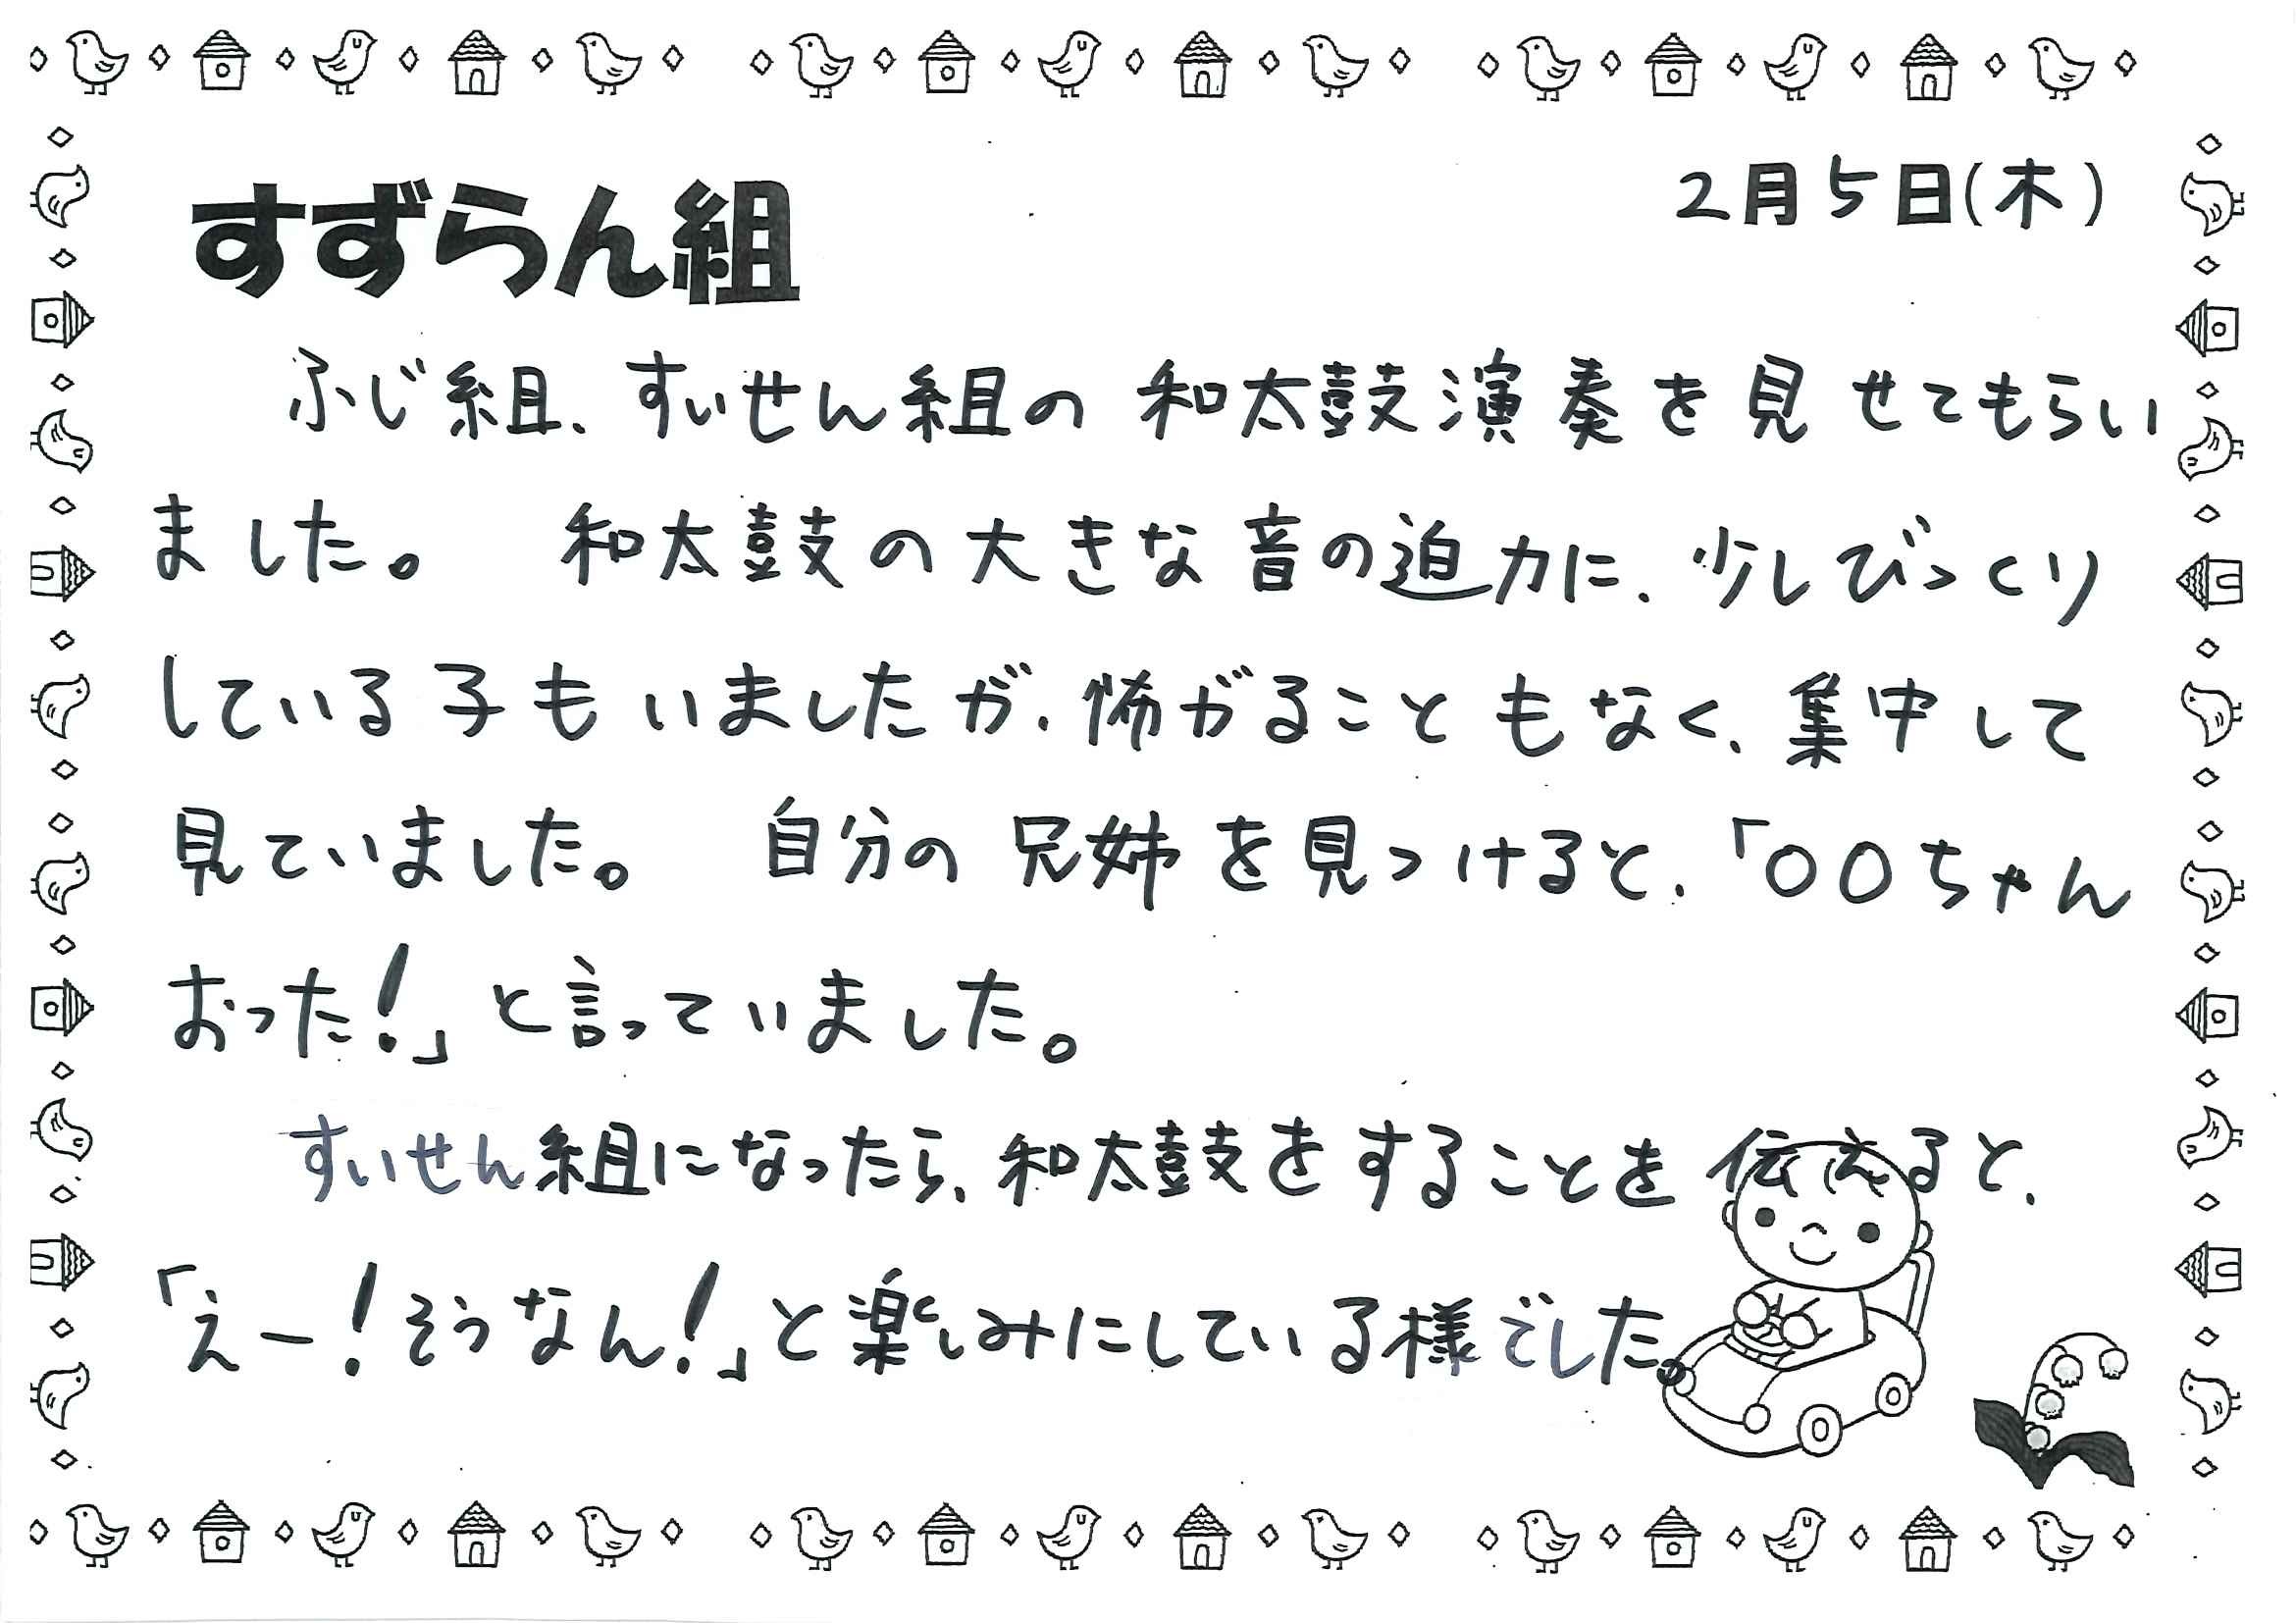 すずらん組
2月5日(木)
ふじ組、すいせん組の和太鼓演奏を見せてもらい
ました。 和太鼓の大きな音の迫力に、少しびっくり
している子もいましたが、怖がることもなく、集中して
見ていました。 自分の兄姉を見つけると、「〇〇ちゃん
おった!」と言っていました。
すいせん組になったら、和太鼓をすることを伝えると、
「えー!そうなん!」と楽しみにしている様でした。